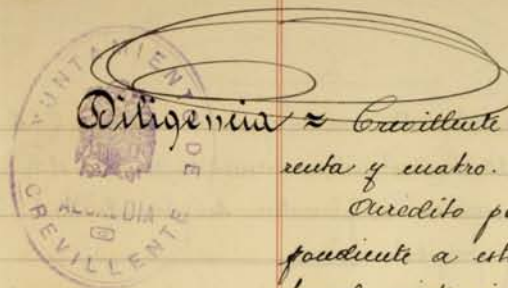 AYUNTAMIENTO DE CREVILLENTE
ALCALDIA
Diligencia = Crevillente
renta y cuatro.
Acredito p
pondiente a est